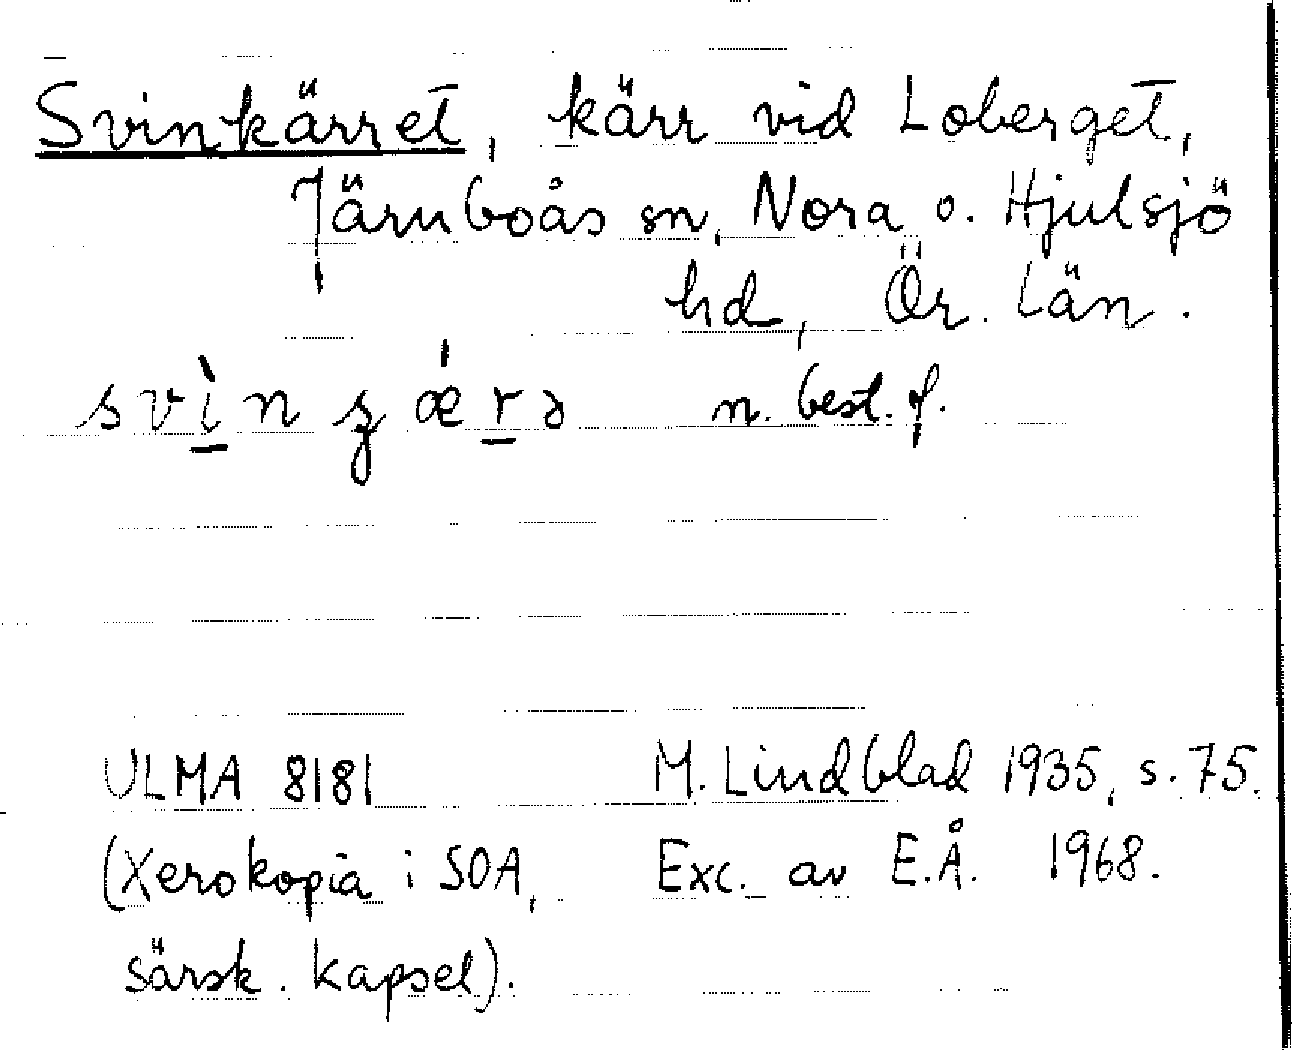 Svinkärret, kärr vid Loberget,
Järnboås sn, Nora o. Hjulsjö
hd, Ör. län.
svìnȥǽrə n. best. f.
ULMA 8181 M. Lindblad 1935, s. 75.
(Xerokopia i SOA, Exc. av E.Å. 1968.
särsk. kapsel).